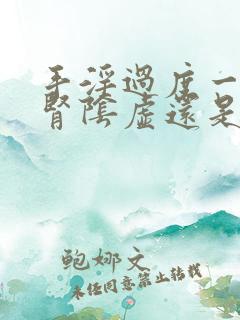 手淫過度一
腎陰虛還是
鲍娜文
未经同意禁止转载